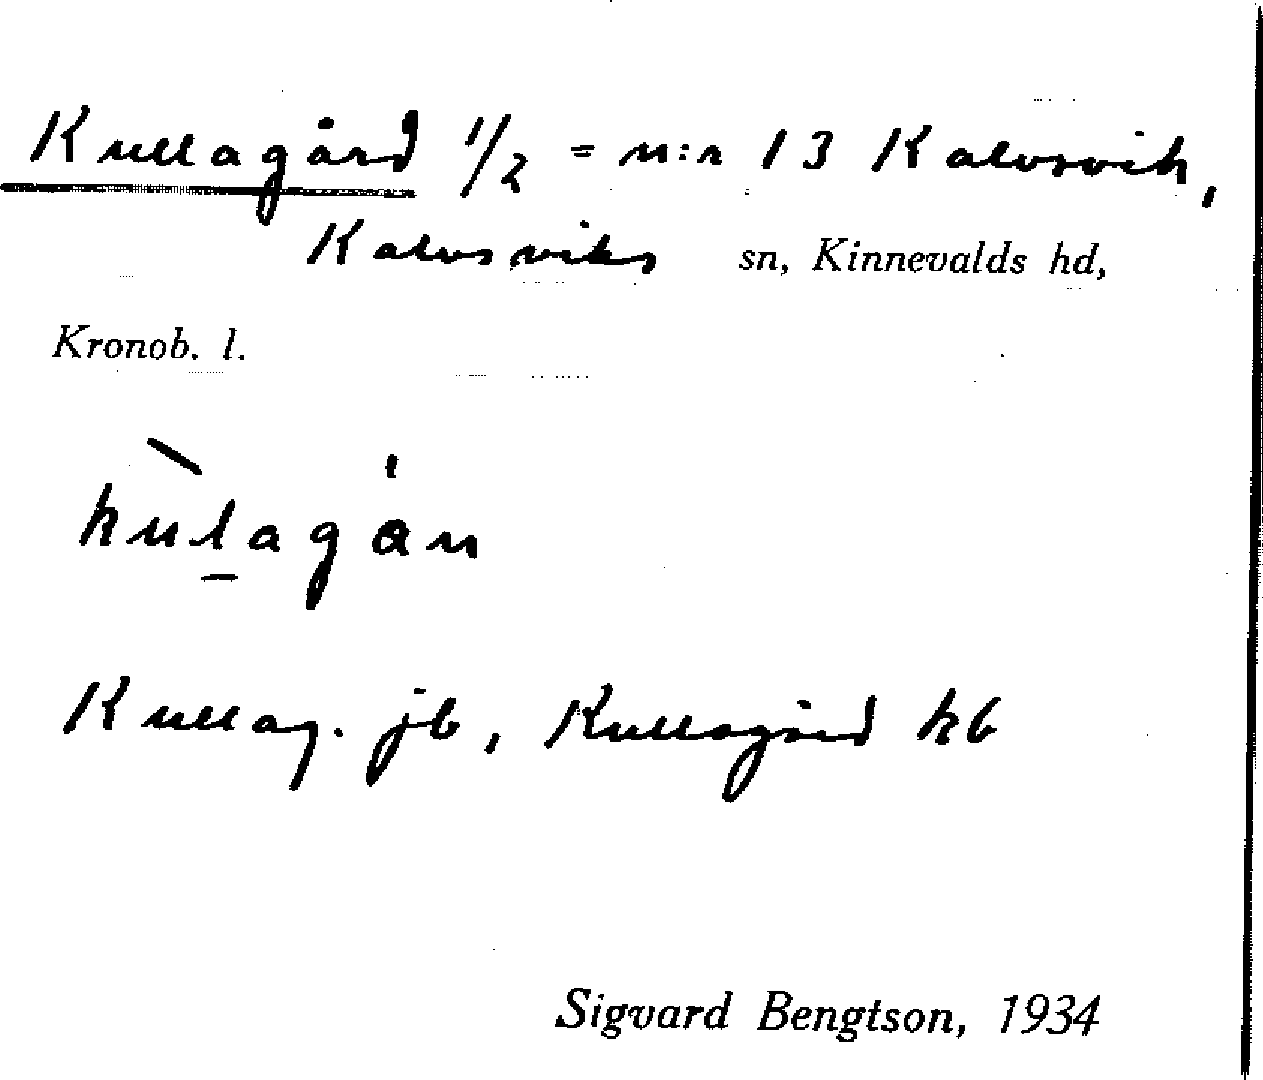 Kullagård 1/2 = n:r 13 Kalvsvik,
Kalvsviks sn, Kinnevalds hd,
Kronob. l.
kùl̲agɑ̍n
Kullag. jb, Kullagård kb
Sigvard Bengtson, 1934